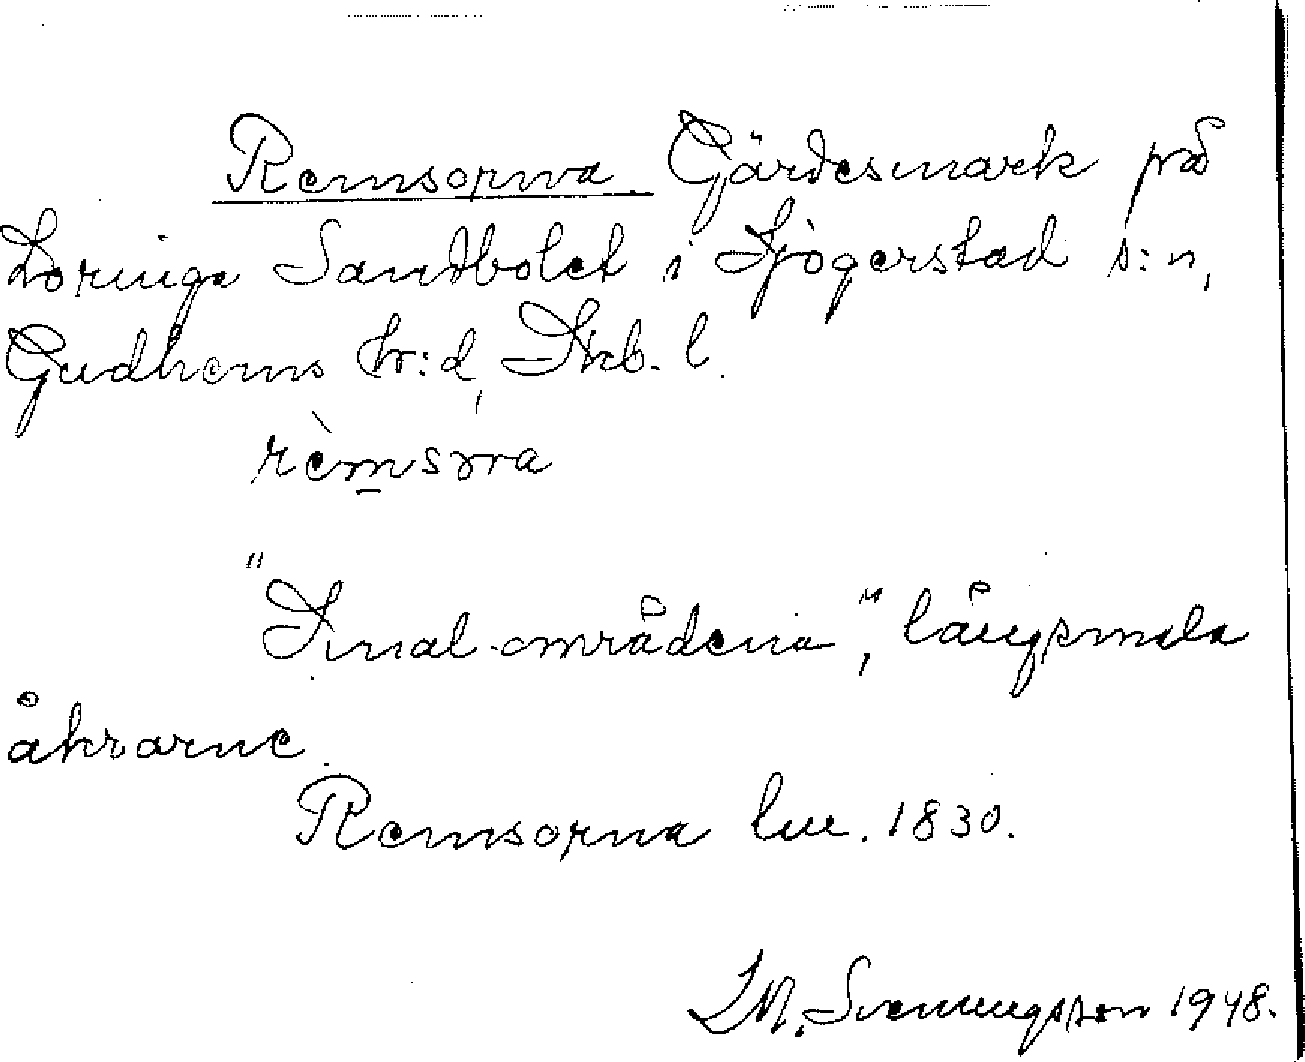 Remsorna. Gärdesmark på
Loringa Sandbolet i Sjögerstad s:n,
Gudhems hr:d, Skb. l.
rèmsɷra
"Smal områdena", långsmala
åkrarne.
Remsorna lm. 1830.
Svenningsson 1948.